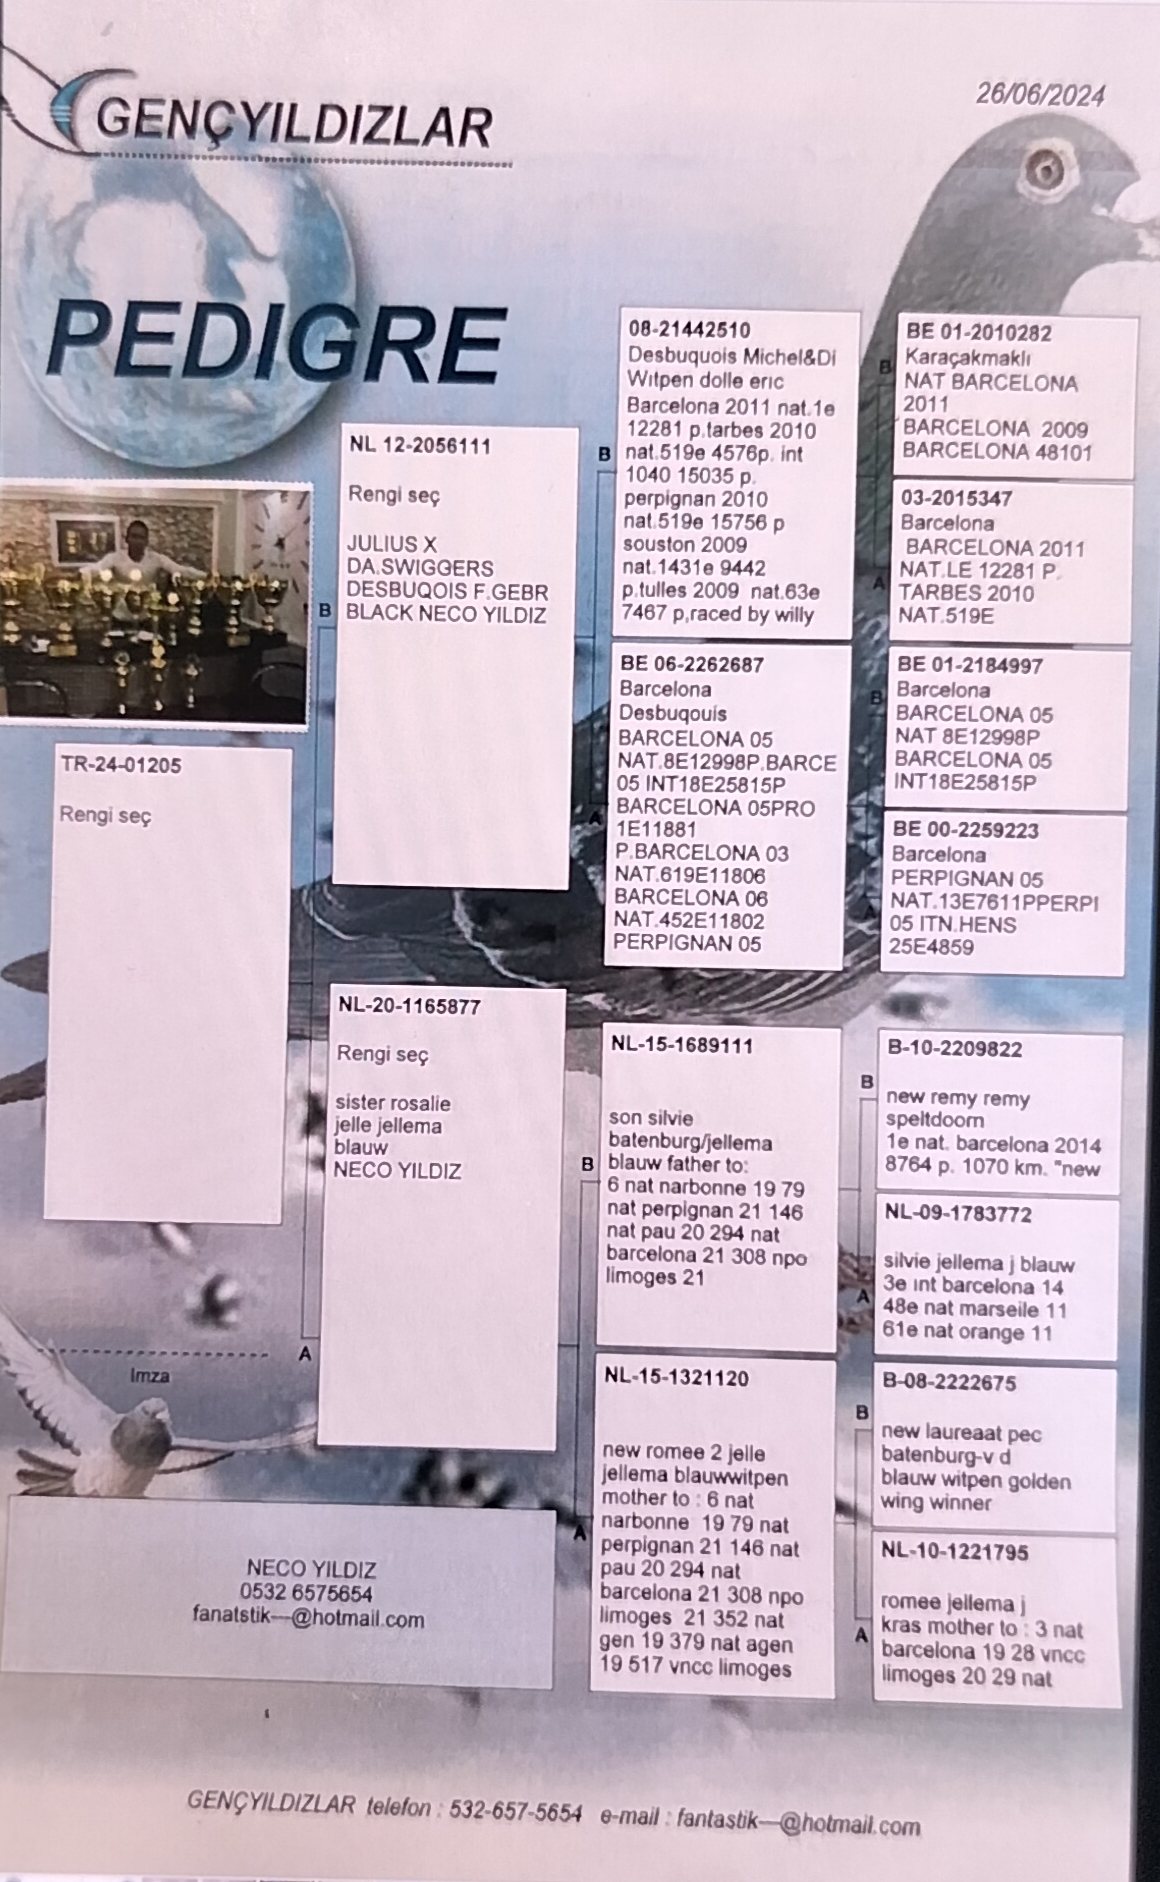 GENÇYILDIZLAR
26/06/2024
PEDIGRE
TR-24-01205
Rengi seç
B
NL 12-2056111
Rengi seç
JULIUS X
DA.SWIGGERS
DESBUQOIS F.GEBR
BLACK NECO YILDIZ
A
NL-20-1165877
Rengi seç
sister rosalie
jelle jellema
blauw
NECO YILDIZ
B
08-21442510
Desbuquois Michel&Di
Witpen dolle eric
Barcelona 2011 nat.1e
12281 p.tarbes 2010
nat.519e 4576p. int
1040 15035 p.
perpignan 2010
nat.519e 15756 p
souston 2009
nat.1431e 9442
p.tulles 2009 nat.63e
7467 p,raced by willy
A
BE 06-2262687
Barcelona
Desbuqouis
BARCELONA 05
NAT.8E12998P.BARCE
05 INT18E25815P
BARCELONA 05PRO
1E11881
P.BARCELONA 03
NAT.619E11806
BARCELONA 06
NAT.452E11802
PERPIGNAN 05
B
NL-15-1689111
son silvie
batenburg/jellema
blauw father to:
6 nat narbonne 19 79
nat perpignan 21 146
nat pau 20 294 nat
barcelona 21 308 npo
limoges 21
A
NL-15-1321120
new romee 2 jelle
jellema blauwwitpen
mother to : 6 nat
narbonne 19 79 nat
perpignan 21 146 nat
pau 20 294 nat
barcelona 21 308 npo
limoges 21 352 nat
gen 19 379 nat agen
19 517 vncc limoges
B
BE 01-2010282
Karaçakmaklı
NAT BARCELONA
2011
BARCELONA 2009
BARCELONA 48101
A
03-2015347
Barcelona
BARCELONA 2011
NAT.LE 12281 P.
TARBES 2010
NAT.519E
B
BE 01-2184997
Barcelona
BARCELONA 05
NAT 8E12998P
BARCELONA 05
INT18E25815P
A
BE 00-2259223
Barcelona
PERPIGNAN 05
NAT.13E7611PPERPI
05 ITN.HENS
25E4859
B
B-10-2209822
new remy remy
speltdoorn
1e nat. barcelona 2014
8764 p. 1070 km. "new
A
NL-09-1783772
silvie jellema j blauw
3e int barcelona 14
48e nat marseile 11
61e nat orange 11
B
B-08-2222675
new laureaat pec
batenburg-v d
blauw witpen golden
wing winner
A
NL-10-1221795
romee jellema j
kras mother to : 3 nat
barcelona 19 28 vncc
limoges 20 29 nat
Imza
NECO YILDIZ
0532 6575654
fanatstik---@hotmail.com
GENÇYILDIZLAR telefon : 532-657-5654 e-mail : fantastik---@hotmail.com